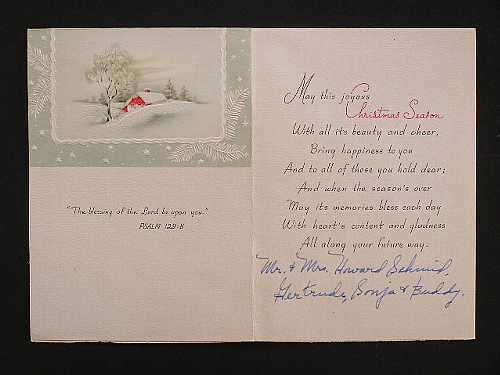 "The blessing of the Lord be upon you."
PSALM 129:8
May this joyous
Christmas Season
With all its beauty and cheer,
Bring happiness to you
And to all of those you hold dear;
And when the season's over
May its memories bless each day
With heart's content and gladness
All along your future way.
Mr. & Mrs. Howard Schmid,
Gertrude, Sonja & Buddy.